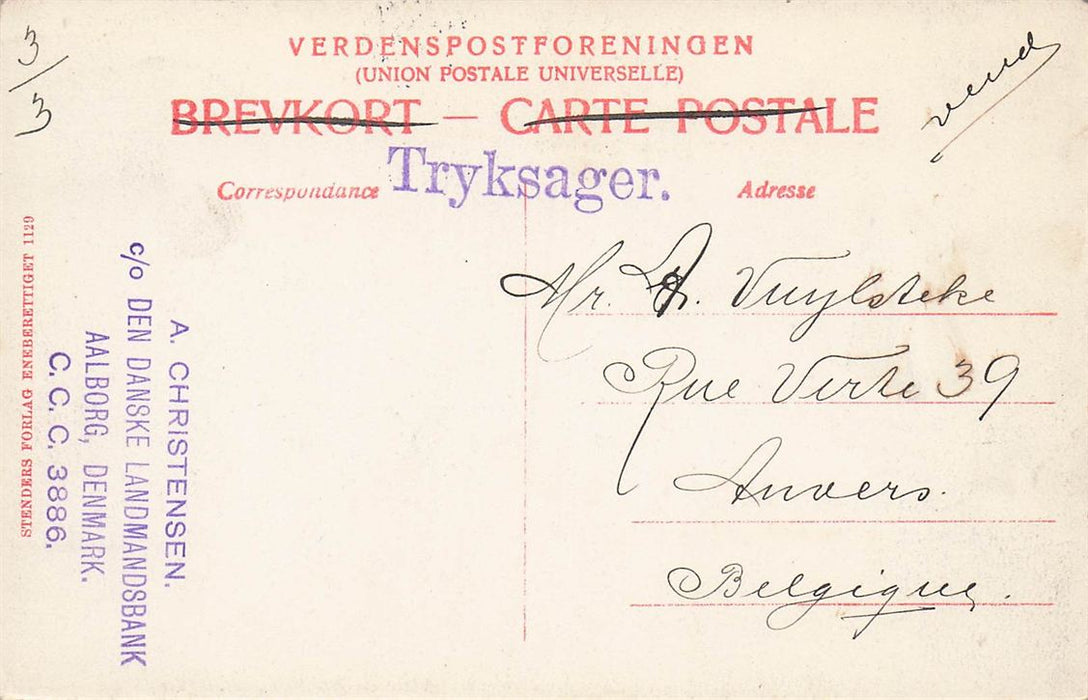 3/3
VERDENSPOSTFORENINGEN
(UNION POSTALE UNIVERSELLE)
BREVKORT — CARTE POSTALE
vend
Tryksager.
Correspondance
Adresse
Mr. A. Vuylsteke
Rue Verte 39
Anvers.
Belgique.
A. CHRISTENSEN.
c/o DEN DANSKE LANDMANDSBANK
AALBORG, DENMARK.
C. C. C. 3886.
STENDERS FORLAG ENEBERETTIGET 1129